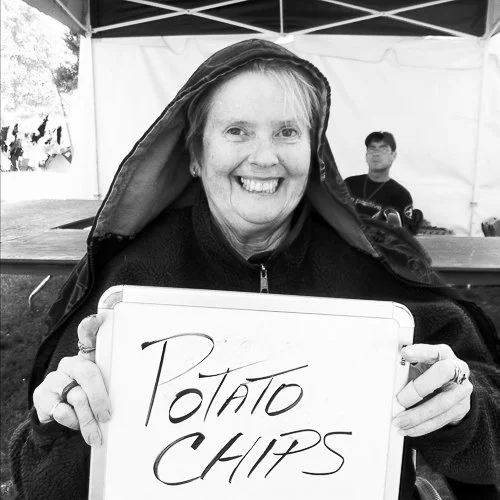 POTATO
CHIPS